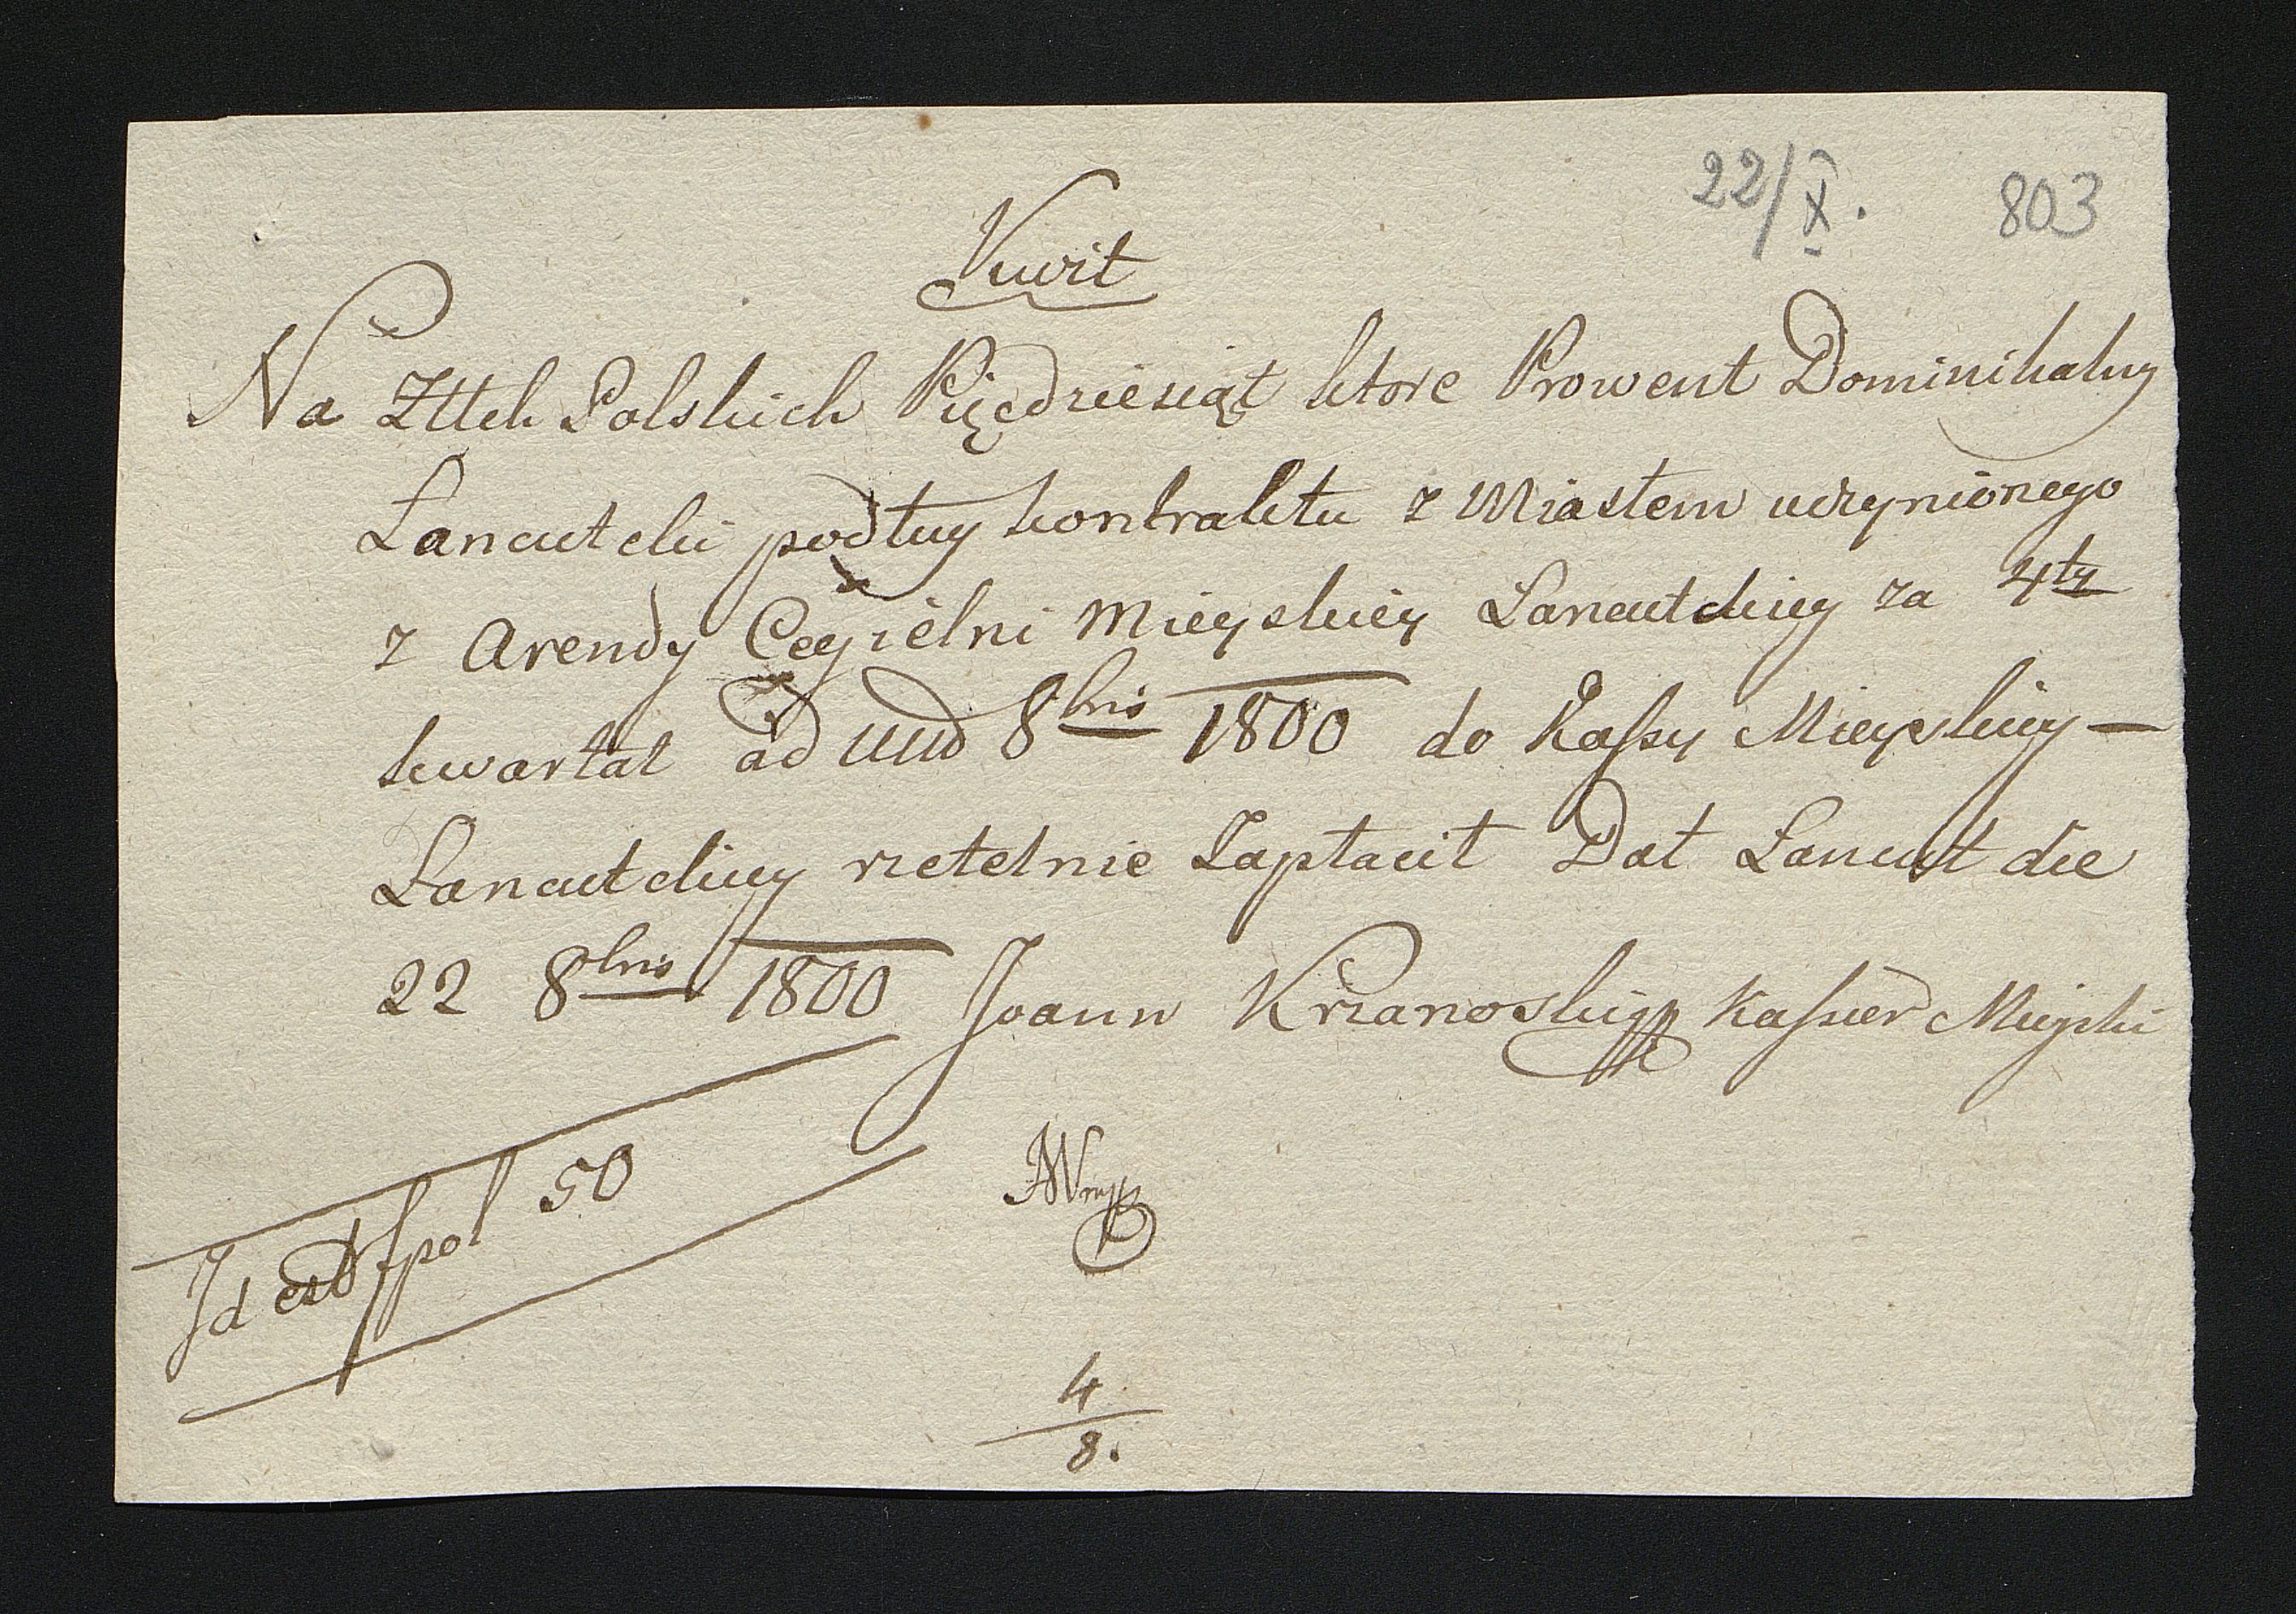 22/X. 803
Kwit
Na Złtch Polskich Pięcdziesiąt ktore Prowent Dominikalny
Lancutcki podług kontraktu z Miastem uczynionego
z Arendy Cegielni Mieyskiey Lancutckiey za 4ty
kwartał ad 8bris 1800 do Kassy Mieyskiey —
Lancutckiey rzetelnie Zapłacił Dat Lancut die
22 8bris 1800 Joann Krzanoski Kassier Mieyski
Id est fpol 50
4
8.